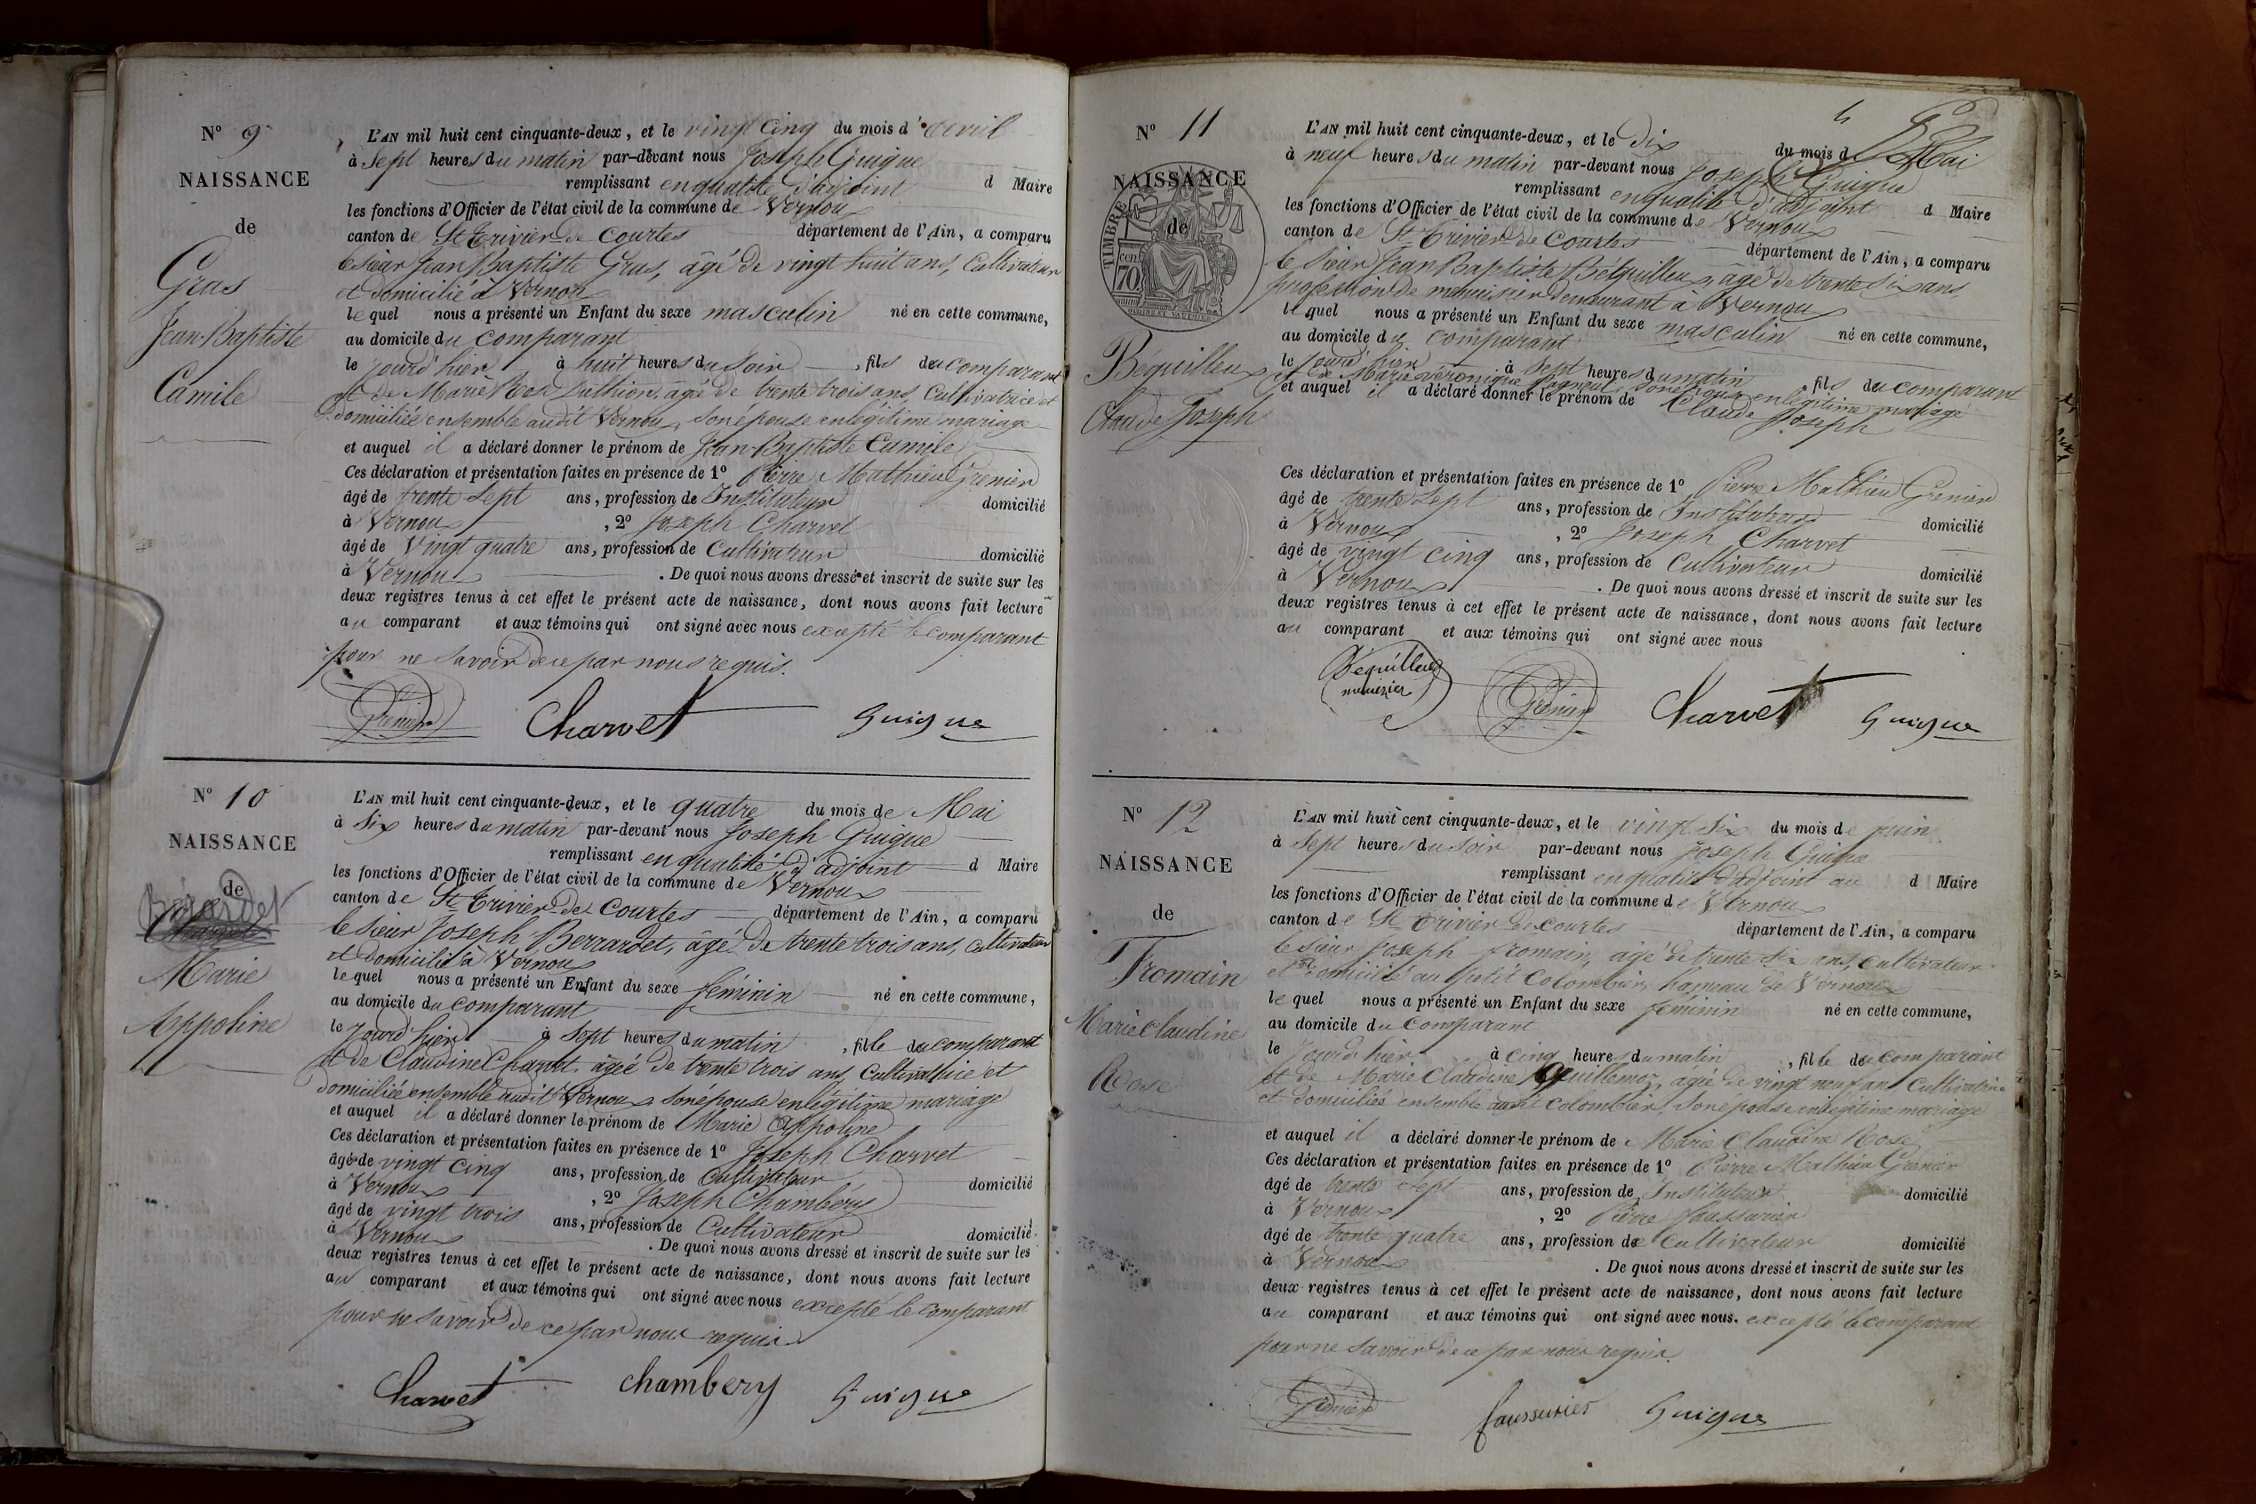 N° 9
NAISSANCE
de
Gras
Jean-Baptiste
Camile
L'AN mil huit cent cinquante-deux, et le vingt cinq du mois d'avril
à sept heures du matin par-devant nous Joseph Guigue
remplissant en qualité d'adjoint d Maire
les fonctions d'Officier de l'état civil de la commune de Vernoux
canton de St Trivier de Courtes département de l'Ain, a comparu
le sieur Jean Baptiste Gras, âgé de vingt huit ans, Cultivateur
et domicilié à Vernoux
lequel nous a présenté un Enfant du sexe masculin né en cette commune,
au domicile du comparant
le jourd'hier à huit heures du soir, fils du comparant
et de Marie Rose Luthion, âgée de trente trois ans, Cultivatrice et
domiciliée ensemble audit Vernoux, son épouse en légitime mariage
et auquel il a déclaré donner le prénom de Jean-Baptiste Camile
Ces déclaration et présentation faites en présence de 1° Pierre Mathieu Grenier
âgé de trente sept ans, profession de Instituteur domicilié
à Vernoux, 2° Joseph Charvet
âgé de vingt quatre ans, profession de Cultivateur domicilié
à Vernoux. De quoi nous avons dressé et inscrit de suite sur les
deux registres tenus à cet effet le présent acte de naissance, dont nous avons fait lecture
au comparant et aux témoins qui ont signé avec nous excepté le comparant
pour ne savoir de ce par nous requis.
Grenier Charvet Guigue
N° 10
NAISSANCE
de
Marie
Appoline
L'AN mil huit cent cinquante-deux, et le quatre du mois de Mai
à Six heures du matin par-devant nous Joseph Guigue
remplissant en qualité d'adjoint d Maire
les fonctions d'Officier de l'état civil de la commune de Vernoux
canton de St Trivier de Courtes département de l'Ain, a comparu
le sieur Joseph Berrardet, âgé de trente trois ans, cultivateur
et domicilié à Vernoux
lequel nous a présenté un Enfant du sexe féminin né en cette commune,
au domicile du comparant
le jourd'hier à sept heures du matin, fille du comparant
et de Claudine Charvet âgée de trente trois ans, cultivatrice et
domiciliée ensemble audit Vernoux son épouse en légitime mariage
et auquel il a déclaré donner le prénom de Marie Appoline
Ces déclaration et présentation faites en présence de 1° Joseph Charvet
âgé de vingt cinq ans, profession de Cultivateur domicilié
à Vernoux, 2° Joseph Chambéry
âgé de vingt trois ans, profession de Cultivateur domicilié
à Vernoux. De quoi nous avons dressé et inscrit de suite sur les
deux registres tenus à cet effet le présent acte de naissance, dont nous avons fait lecture
au comparant et aux témoins qui ont signé avec nous excepté le comparant
pour ne savoir de ce par nous requis
Charvet Chambery Guigue
N° 11
NAISSANCE
de
TIMBRE
70 cen
Béquilleux
Claude Joseph
L'AN mil huit cent cinquante-deux, et le dix du mois d Mai
à neuf heures du matin par-devant nous Joseph Guigue
remplissant en qualité d'adjoint d Maire
les fonctions d'Officier de l'état civil de la commune de Vernoux
canton de St Trivier de Courtes département de l'Ain, a comparu
le sieur Jean Baptiste Béquilleux, âgé de trente six ans,
profession de menuisier demeurant à Vernoux
lequel nous a présenté un Enfant du sexe masculin né en cette commune,
au domicile du comparant
le jourd'hier à sept heures du matin, fils du comparant
et de Marie Véronique son épouse en légitime mariage
et auquel il a déclaré donner le prénom de Claude Joseph
Ces déclaration et présentation faites en présence de 1° Pierre Mathieu Grenier
âgé de trente sept ans, profession de Instituteur domicilié
à Vernoux, 2° Joseph Charvet
âgé de vingt cinq ans, profession de Cultivateur domicilié
à Vernoux. De quoi nous avons dressé et inscrit de suite sur les
deux registres tenus à cet effet le présent acte de naissance, dont nous avons fait lecture
au comparant et aux témoins qui ont signé avec nous
Béquilleux
menuzier
Grenier Charvet Guigue
N° 12
NAISSANCE
de
Fromain
Marie Claudine
Rose
L'AN mil huit cent cinquante-deux, et le vingt six du mois de juin
à sept heures du soir par-devant nous Joseph Guigue
remplissant en qualité d'adjoint au d Maire
les fonctions d'Officier de l'état civil de la commune de Vernoux
canton de St Trivier de Courtes département de l'Ain, a comparu
le sieur Joseph Fromain, âgé de trente six ans, cultivateur
et domicilié au petit Colombier, hameau de Vernoux
lequel nous a présenté un Enfant du sexe féminin né en cette commune,
au domicile du comparant
le jourd'hier à cinq heures du matin, fille du comparant
et de Marie Claudine Guillemoz, âgée de vingt neuf ans Cultivatrice
et domiciliés ensemble audit Colombier, son épouse en légitime mariage
et auquel il a déclaré donner le prénom de Marie Claudine Rose
Ces déclaration et présentation faites en présence de 1° Pierre Mathieu Grenier
âgé de trente sept ans, profession de Instituteur domicilié
à Vernoux, 2° Pierre Faussurier
âgé de trente quatre ans, profession de Cultivateur domicilié
à Vernoux. De quoi nous avons dressé et inscrit de suite sur les
deux registres tenus à cet effet le présent acte de naissance, dont nous avons fait lecture
au comparant et aux témoins qui ont signé avec nous. excepté le comparant
pour ne savoir de ce par nous requis.
Grenier faussurier Guigue